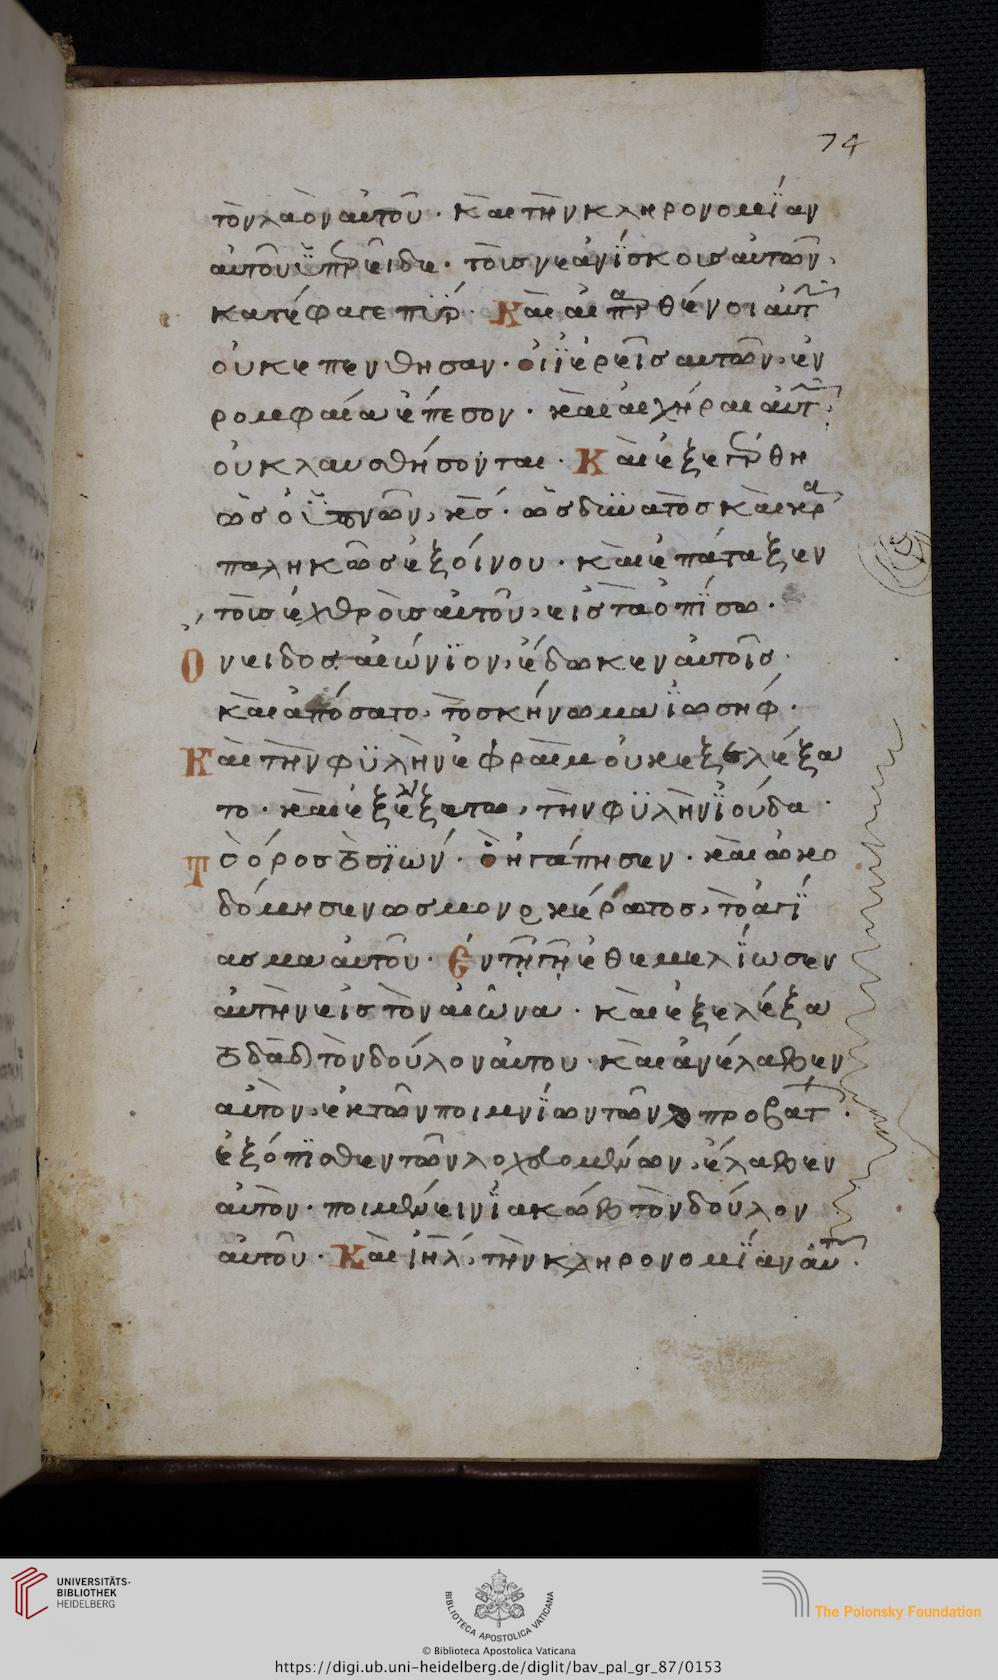 74
τὸν λαὸν αὐτοῦ · καὶ τὴν κληρονομΐαν
αὐτοῦ ϋπερεῖδε · τοὺς νεανΐσκους αὐτῶν,
κατέφαγε πῦρ · Καὶ αἱ παρθένοι αὐτῶν
οὐκ επενθησαν · οἱ ϊερεῖς αυτῶν, ἐν
ρομφαία ἔπεσον · καὶ αἱ χήραι αὐτῶν,
οὐ κλαυσθήσονται · Καὶ ἐξηγέρθη
ὡς ὁ ϋπνῶν, κς · ὡς δυνατὸς καὶ κρα
παληκῶς ἐξ οίνου · καὶ ἐπάταξεν
τοὺς ἐχθροὺς αὐτοῦ, εἰς τὰ ὀπΐσω ·
Ονειδος αἰώνϊον, ἔδωκεν αὐτοῖς ·
καὶ ἀπόσατο, τὸ σκήνωμα ϊωσήφ ·
Καὶ τὴν φϋλὴν ἐφραὶμ οὐκ εξελέξα
το · καὶ ἐξελέξατω, τὴν φϋλὴν ϊούδα ·
Τὸ όρος τὸ σϊών · ὃ ἠγάπησεν · καὶ ὠκο
δόμησεν ως μονοκέρωτος, τὸ ἁγΐ
ασμα αὐτοῦ · Ἐν τῆ γῆ ἐθεμελΐωσεν
αὐτὴν εἰς τὸν αἰῶνα · καὶ ἐξελέξα
το δαδ τὸν δούλον αὐτου · καὶ ἀνέλαβεν
αὐτὸν, ἐκ τῶν ποιμνΐων τῶν προβάτων ·
ἐξόπϊσθεν τῶν λοχευομένων, ἔλαβεν
αὐτὸν · ποιμένειν ϊακώβ τὸν δούλον
αὐτοῦ · Καὶ ἰηλ, τὴν κληρονομΐαν αὐτοῦ ·
UNIVERSITÄTS-
BIBLIOTHEK
HEIDELBERG
BIBLIOTECA APOSTOLICA VATICANA
The Polonsky Foundation
© Biblioteca Apostolica Vaticana
https://digi.ub.uni-heidelberg.de/diglit/bav_pal_gr_87/0153